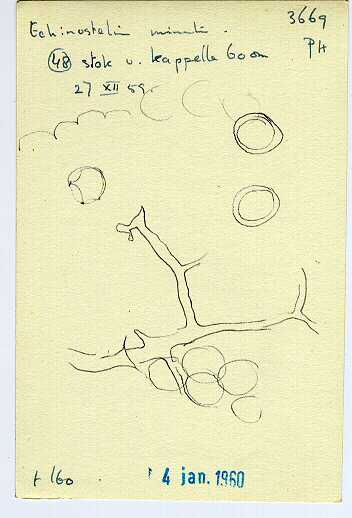 Echinostelium minutum. 3669
(48) stok v. kappelleboom PH
27 XII 59.
+ 160
4 jan. 1960